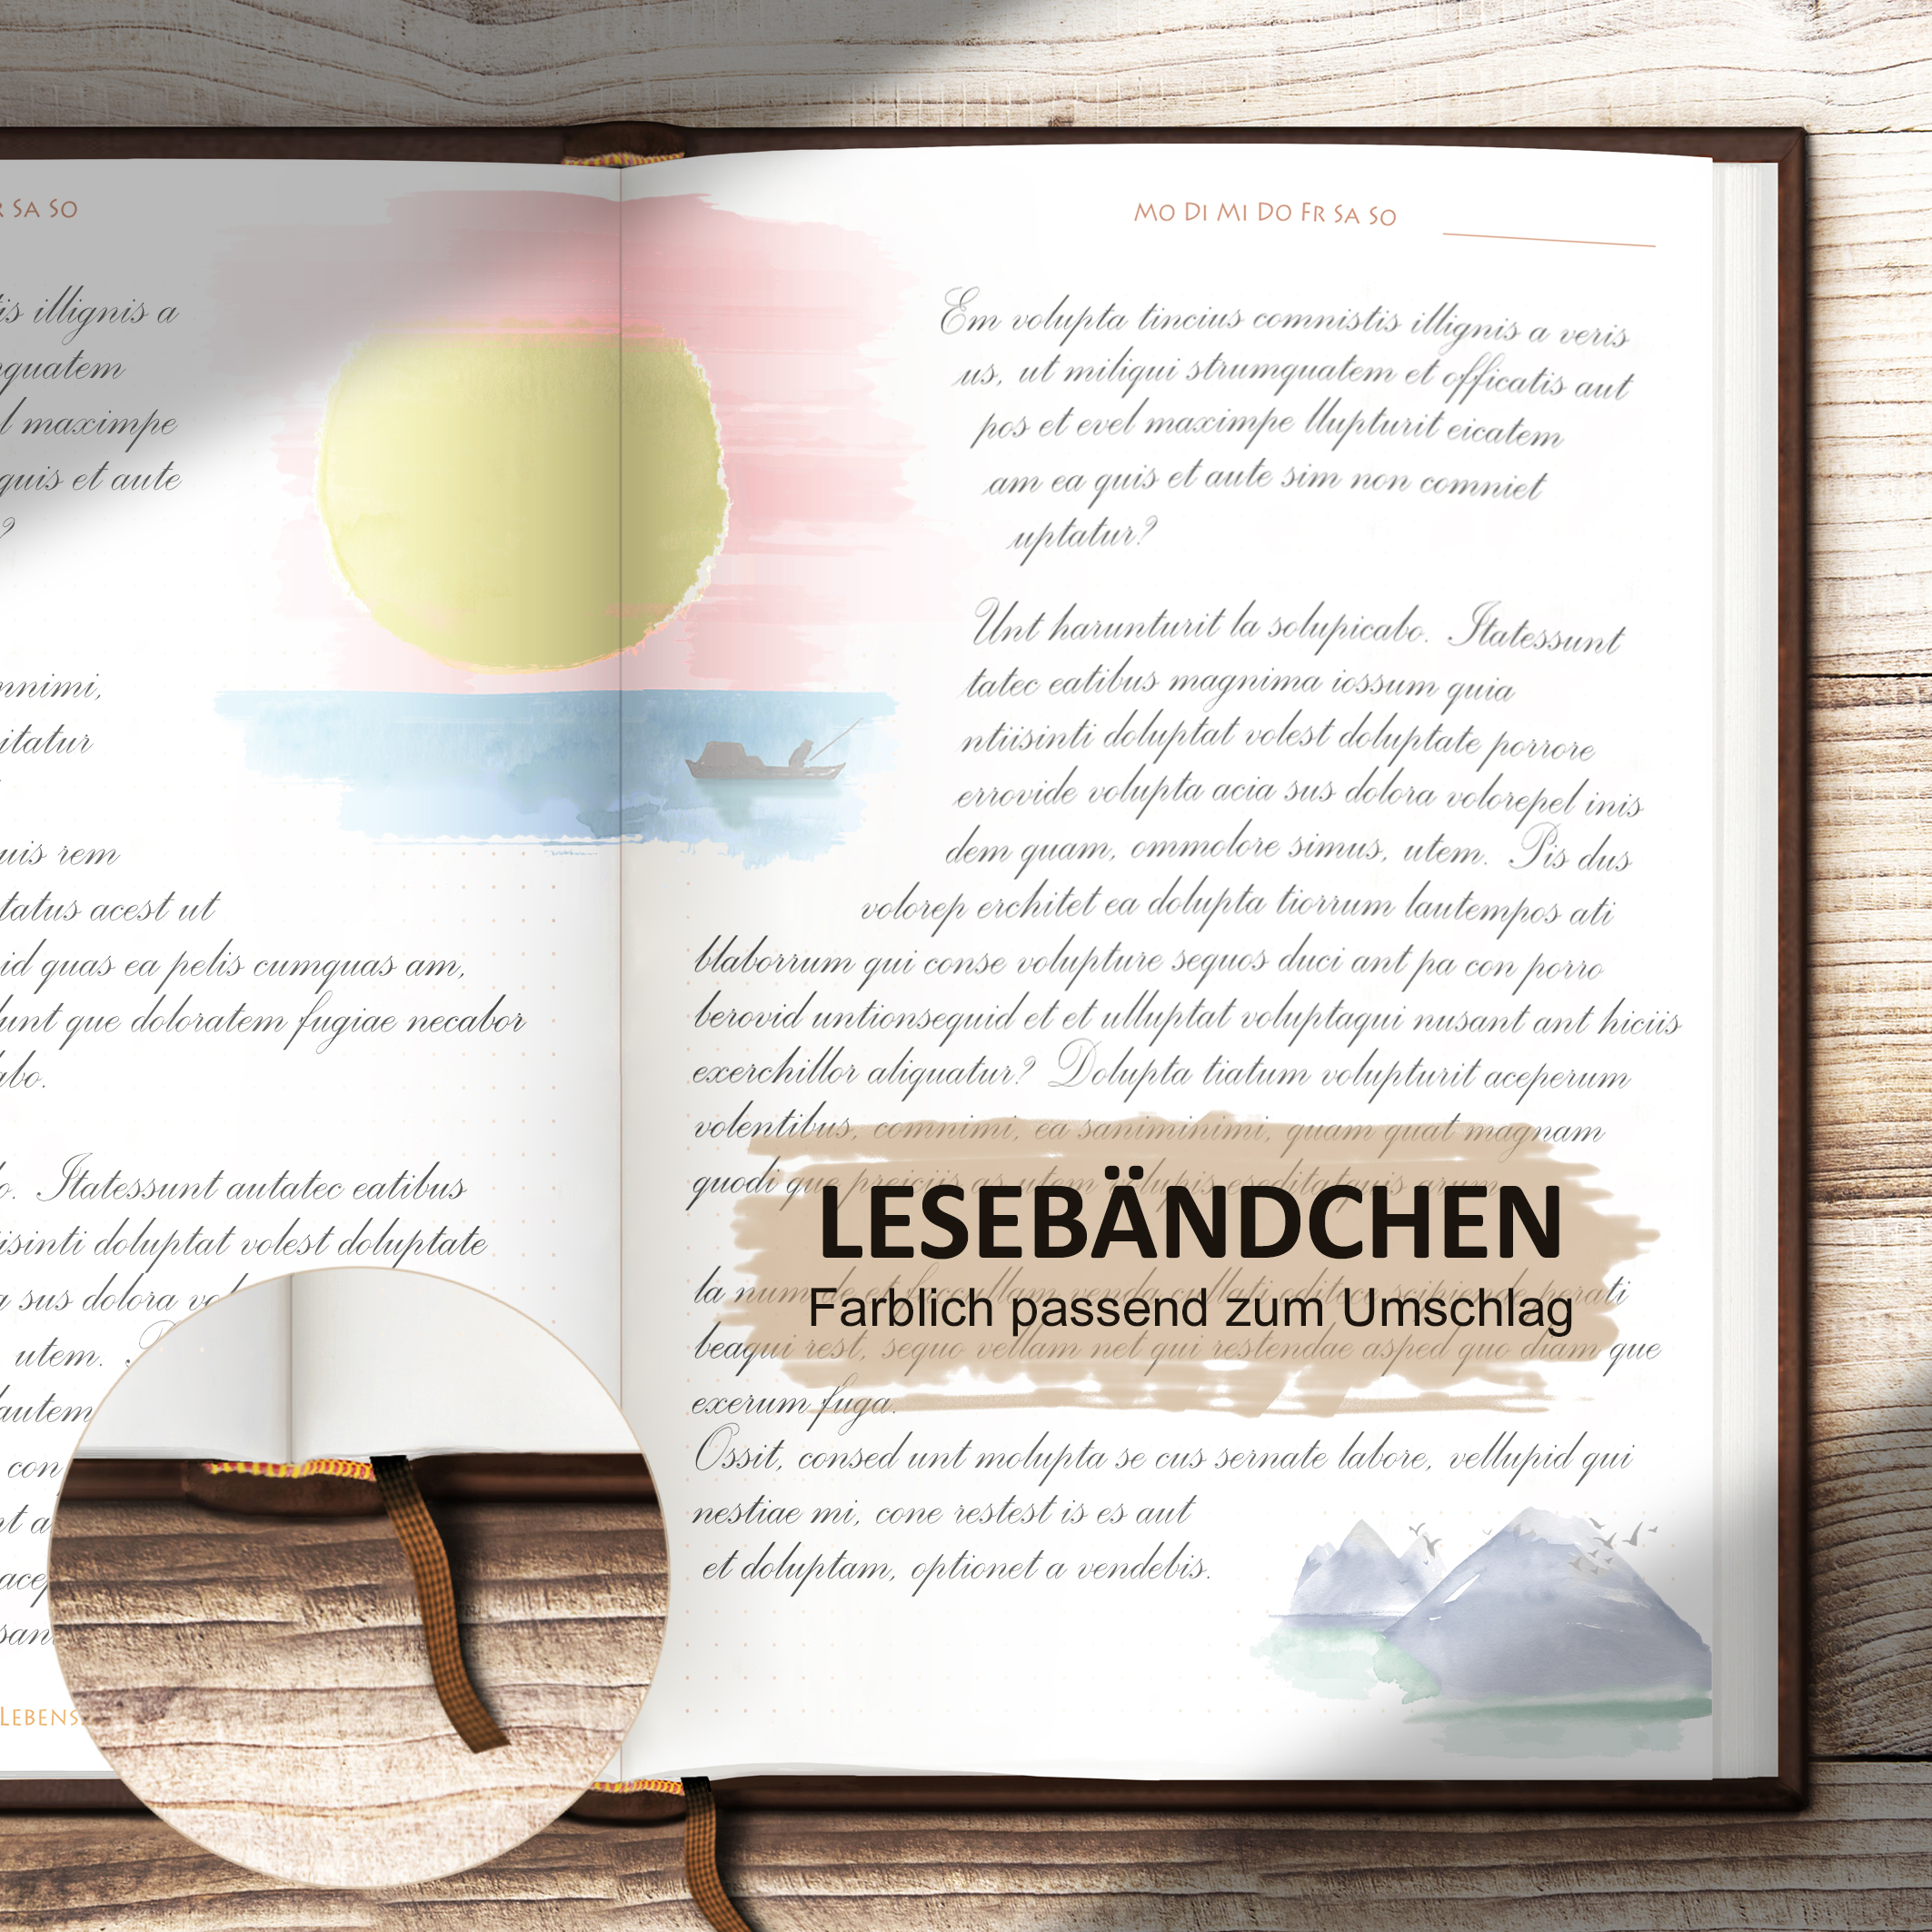 R SA SO
is illignis a
quatem
l maximpe
quis et aute
?
nnimi,
itatur
uis rem
tatus acest ut
id quas ea pelis cumquas am,
unt que doloratem fugiae necabor
abo.
o. Itatessunt autatec eatibus
isinti doluptat volest doluptate
a sus dolora vol
utem.
autem
con
nt a
acep
san
LEBENS
MO DI MI DO FR SA SO
Em volupta tincius comnistis illignis a veris
us, ut miliqui strumquatem et officatis aut
pos et evel maximpe llupturit eicatem
am ea quis et aute sim non comniet
uptatur?
Unt harunturit la solupicabo. Itatessunt
tatec eatibus magnima iossum quia
ntiisinti doluptat volest doluptate porrore
errovide volupta acia sus dolora volorepel inis
dem quam, ommolore simus, utem. Pis dus
volorep erchitet ea dolupta tiorrum lautempos ati
blaborrum qui conse volupture sequos duci ant pa con porro
berovid untionsequid et et ulluptat voluptaqui nusant ant hiciis
exerchillor aliquatur? Dolupta tiatum volupturit aceperum
volentibus, comnimi, ea saniminimi, quam quat magnam
quodi que preiciis as utem volupis eseditatquis arum
LESEBÄNDCHEN
la num de et
Farblich passend zum Umschlag
beaqui rest, sequo vellam net qui restendae asped quo diam que
exerum fuga.
Ossit, consed unt molupta se cus sernate labore, vellupid qui
nestiae mi, cone restest is es aut
et doluptam, optionet a vendebis.